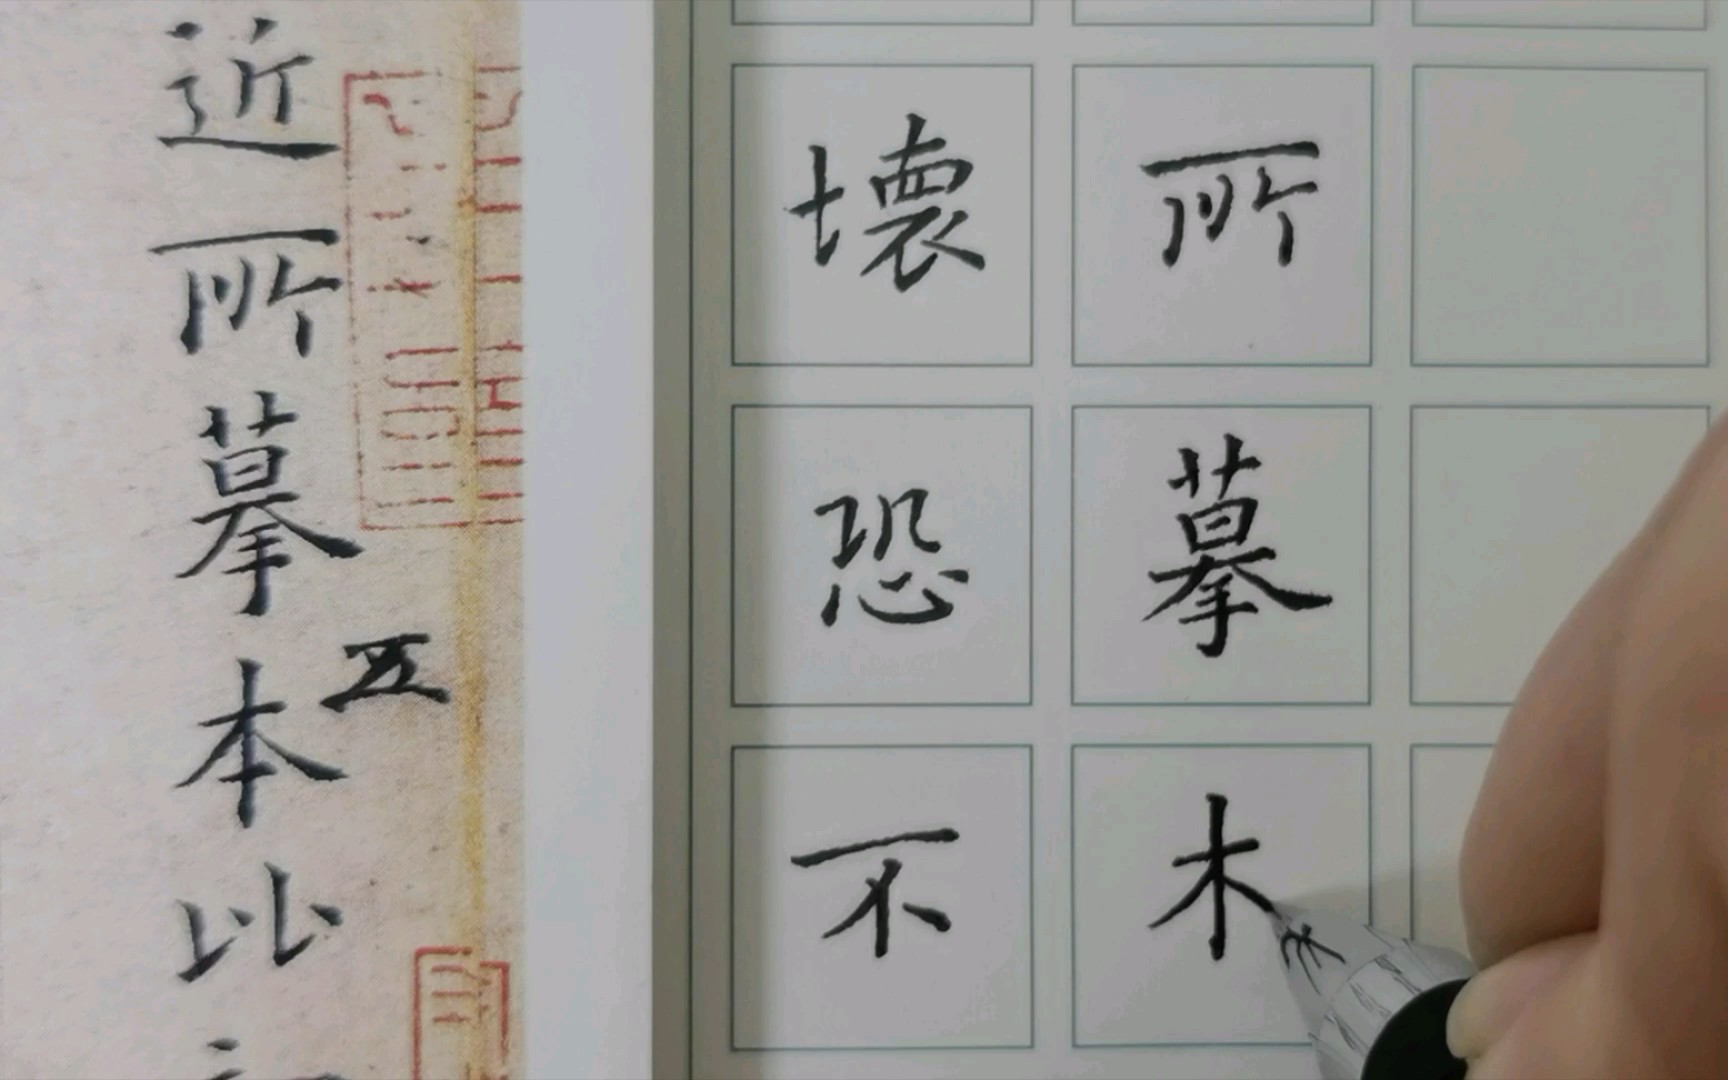 近所摹本比
五
壞恐不
所摹木